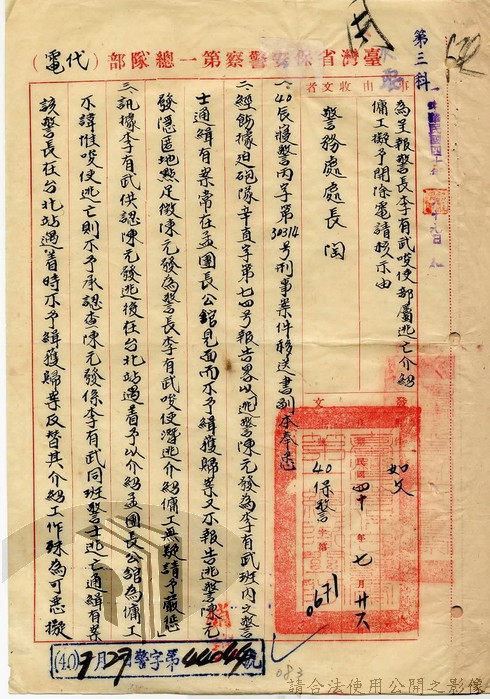 臺灣省保安警察第一總隊部（代電）
第三科
事由
收文者
為呈報警長李有武唆使部屬逃亡介紹
傭工擬予開除電請核示由
警務處處長陶
如文
中華民國四十年七月廿六
40保警字第0671
一、40辰寢警丙字第30314号刑事案件移送書副本奉悉
二、經飭據迫砲隊辛直字第七四号報告畧以逃警陳元發為李有武班內之警
士通緝有案常在孟團長公館見面而不予緝獲歸案又不報告逃警陳元
發隱匿地點足徵陳元發為警長李有武唆使潛逃介紹傭工無疑請予嚴懲」
三、訊據李有武供認陳元發逃後在台北站遇着予以介紹孟團長公館為傭工
不諱惟唆使逃亡則不予承認查陳元發係李有武同班警士逃亡通緝有案
該警長在台北站遇着時不予緝獲歸案反替其介紹工作殊為可惡擬
(40)7月27日警字第44049號
083
請合法使用公開之影像